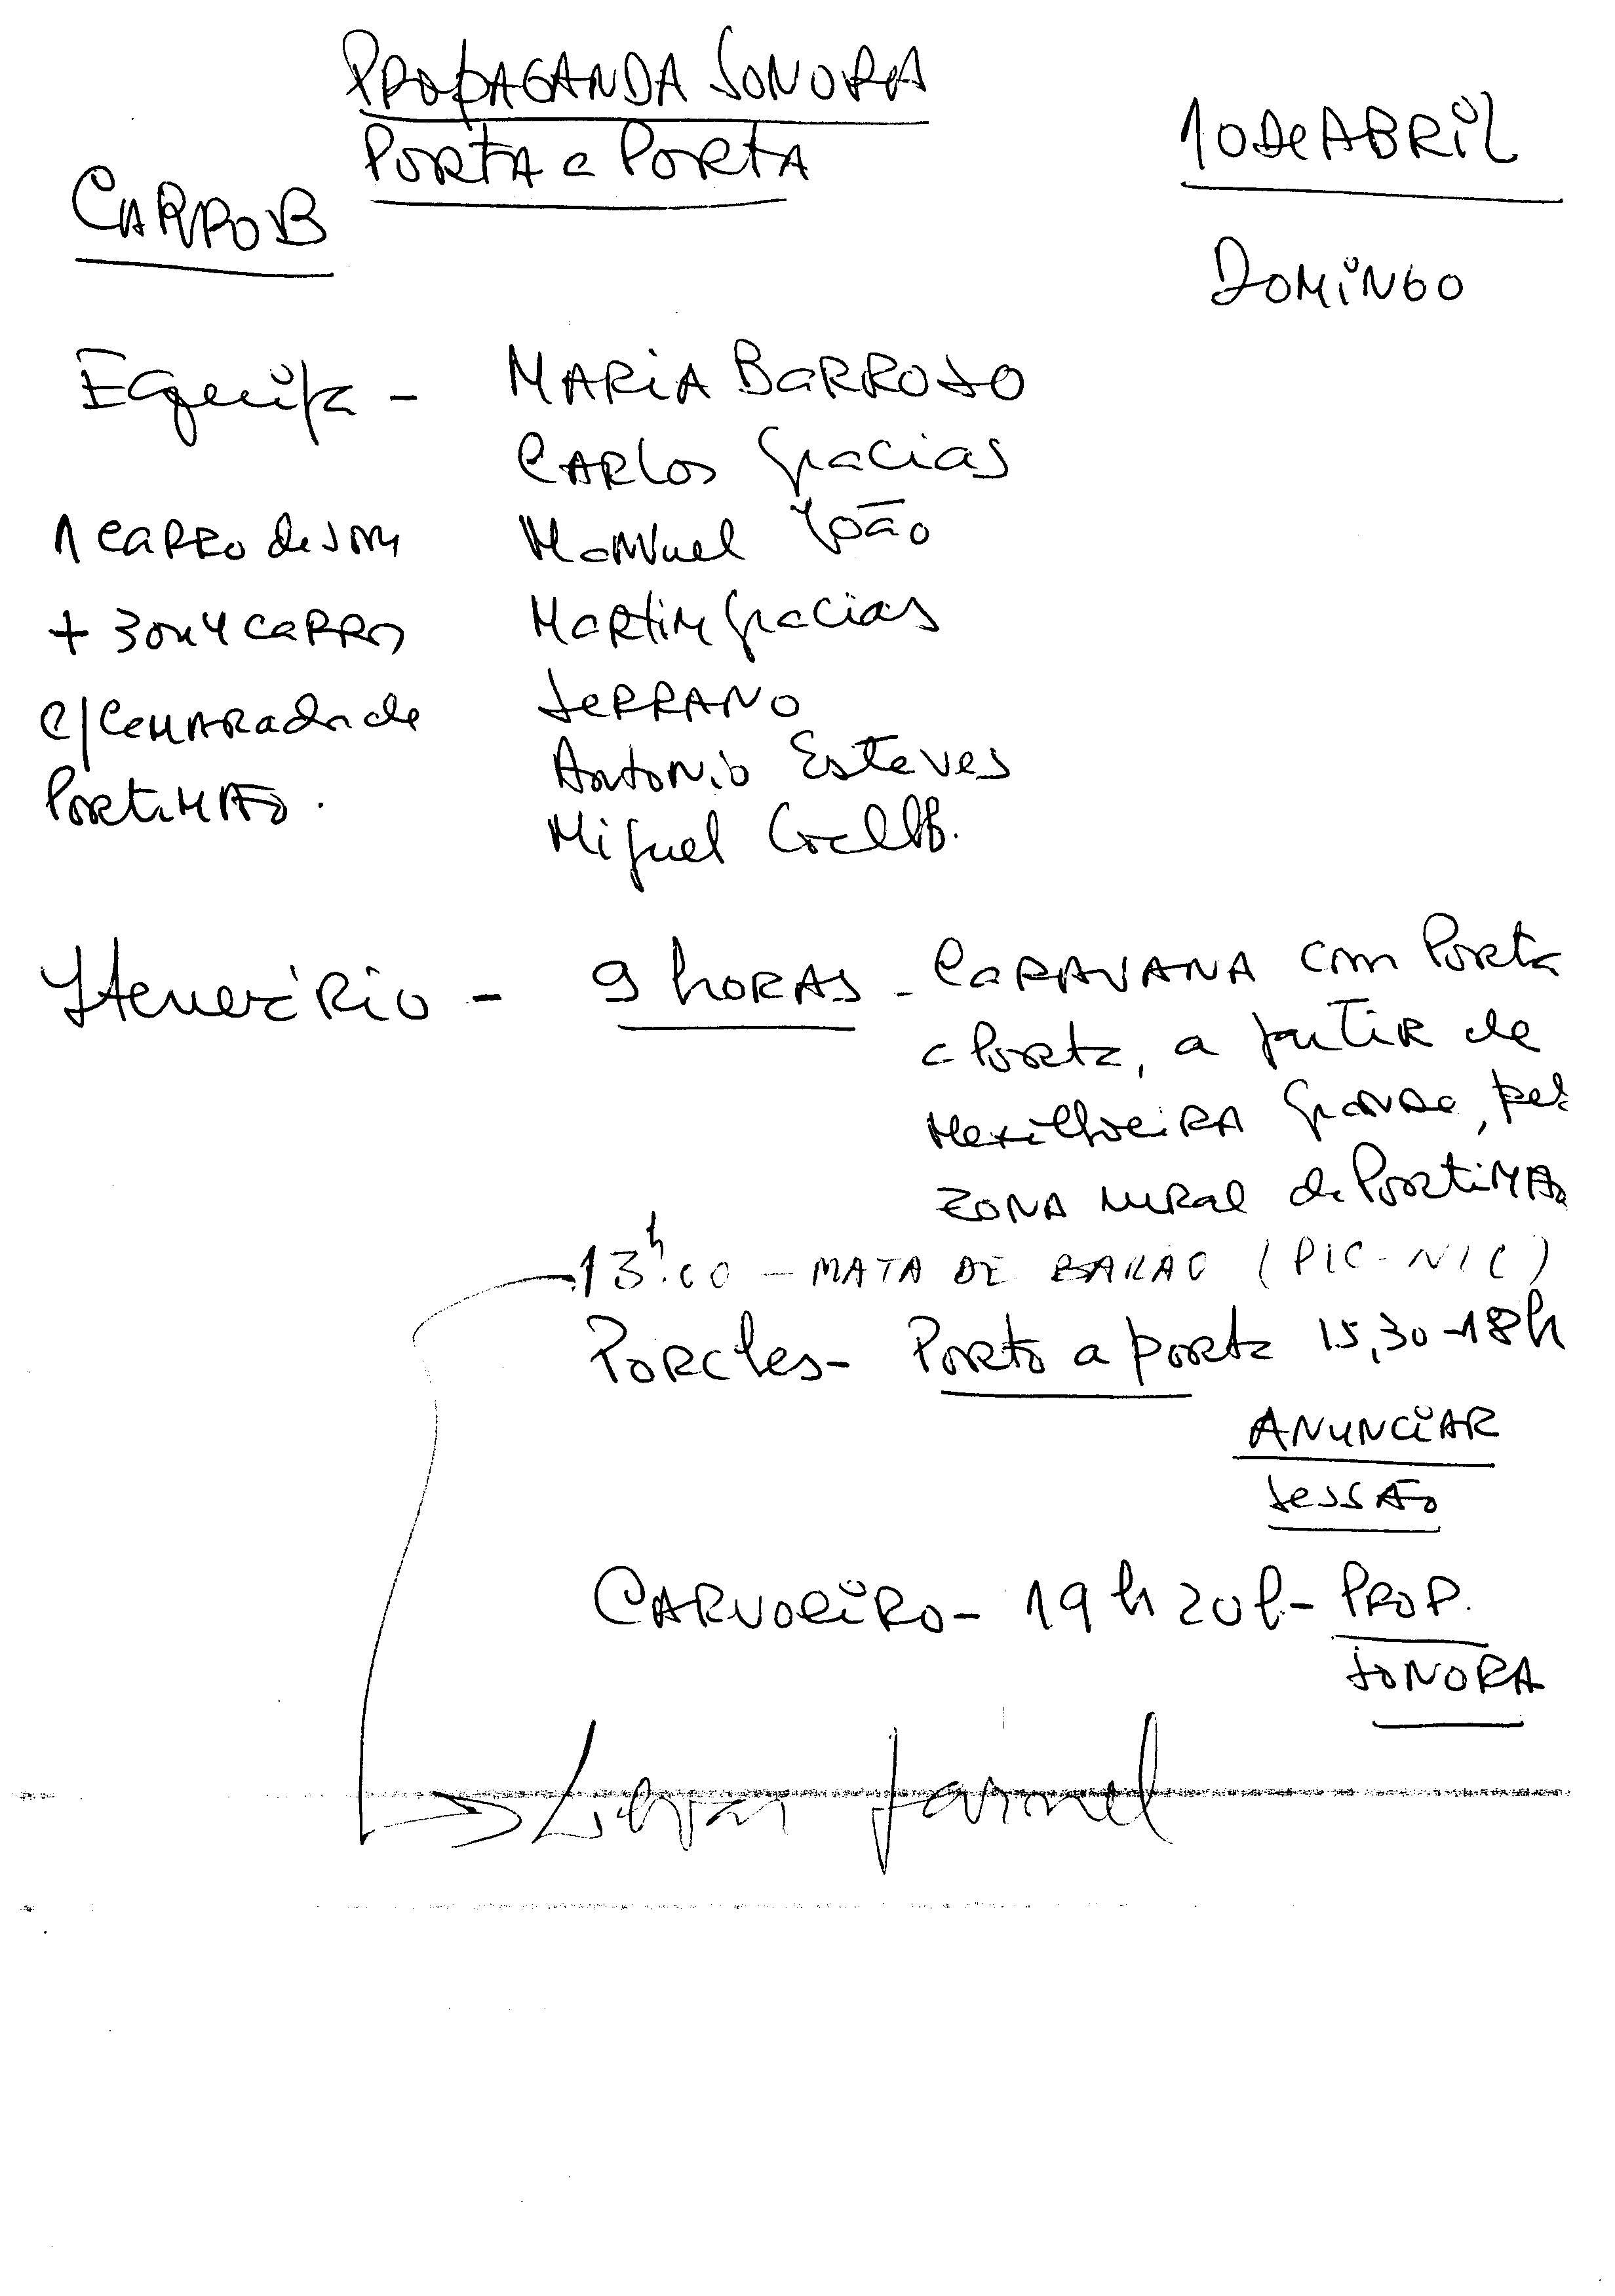 PROPAGANDA SONORA
PORTA a PORTA
10 de ABRIL
CARRO B
DOMINGO
Equipa - MARIA BARROSO
CARLOS Gracias
1 CARRO de SOM
Manuel João
+ 3 ou 4 CARROS
Martim Gracias
C/ CAMARADAS de
SERRANO
PORTIMÃO.
Antonio Esteves
Miguel Coelho.
Itenerário - 9 horas - CARAVANA com Porta
a Porta, a partir de
Mexilhoeira Grande, pela
ZONA rural de PORTIMÃO
13h.00 - MATA DE BARÃO (PIC-NIC)
PORCHES - Porta a porta 15,30-18h
ANUNCIAR
SESSÃO
CARVOEIRO - 19h 20h - PROP.
SONORA